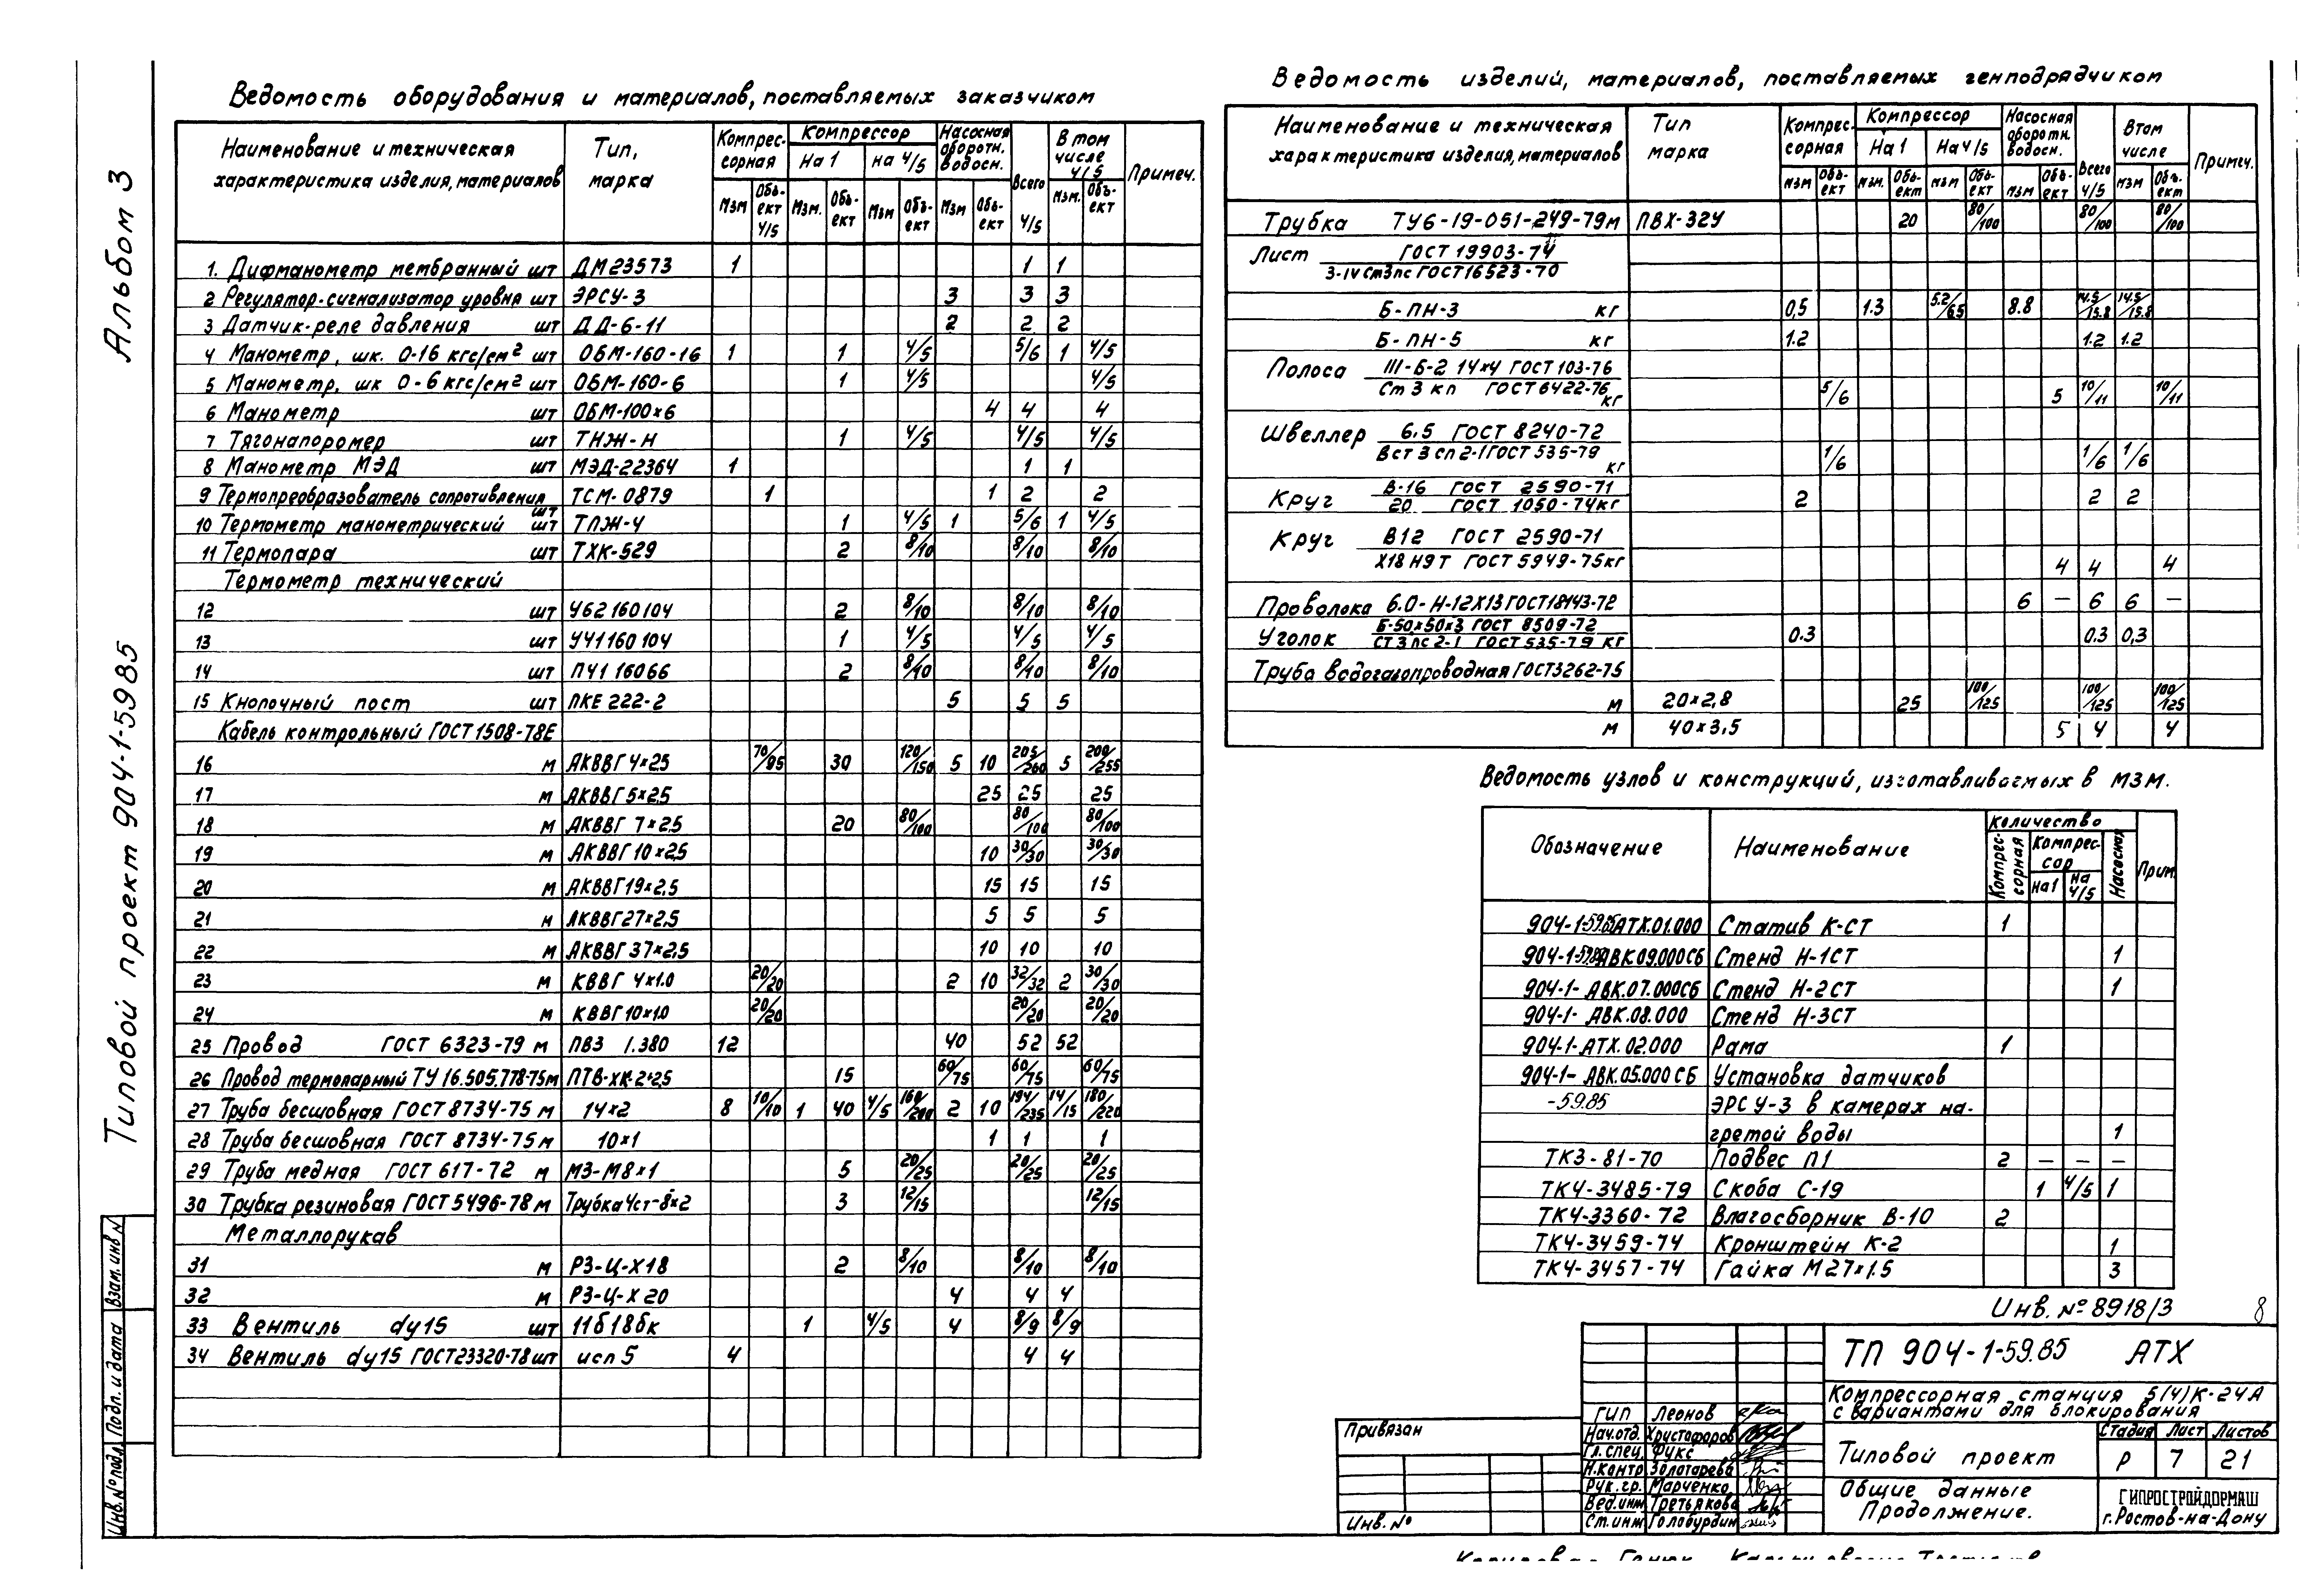 Альбом 3
Типовой проект 904-1-59.85
Ведомость оборудования и материалов, поставляемых заказчиком
Наименование и техническая характеристика изделия, материалов | Тип, марка | Компрессорная | Компрессор | Насосная оборотн. водосн. | Всего 4/5 | В том числе 4/5 | Примеч.
На 1 | на 4/5
мзм | Объект 4/5 | Мзм. | Объект | Мзм | Объект | Мзм | Объект | мзм. | Объект
1. Дифманометр мембранный шт ДМ23573 1 1 1
2 Регулятор-сигнализатор уровня шт ЭРСУ-3 3 3 3
3 Датчик-реле давления шт ДД-6-11 2 2 2
4 Манометр, шк. 0-16 кгс/см² шт ОБМ-160-16 1 1 4/5 5/6 1 4/5
5 Манометр, шк 0-6 кгс/см² шт ОБМ-160-6 1 4/5 4/5
6 Манометр шт ОБМ-100×6 4 4 4
7 Тягонапоромер шт ТНЖ-Н 1 4/5 4/5 4/5
8 Манометр МЭД шт МЭД-22364 1 1 1
9 Термопреобразователь сопротивления шт ТСМ-0879 1 1 2 2
10 Термометр манометрический шт ТПЖ-4 1 4/5 1 5/6 1 4/5
11 Термопара шт ТХК-529 2 8/10 8/10 8/10
Термометр технический
12 шт У62 160 104 2 8/10 8/10 8/10
13 шт У41 160 104 1 4/5 4/5 4/5
14 шт П41 160 66 2 8/10 8/10 8/10
15 Кнопочный пост шт ПКЕ 222-2 5 5 5
Кабель контрольный ГОСТ 1508-78Е
16 м АКВВГ 4×2.5 70/95 30 120/150 5 10 205/260 5 200/255
17 м АКВВГ 5×2.5 25 25 25
18 м АКВВГ 7×2.5 20 80/100 80/100 80/100
19 м АКВВГ 10×2.5 10 30/30 30/30
20 м АКВВГ 19×2.5 15 15 15
21 м АКВВГ 27×2.5 5 5 5
22 м АКВВГ 37×2.5 10 10 10
23 м КВВГ 4×1.0 20/20 2 10 32/32 2 30/30
24 м КВВГ 10×1.0 20/20 20/20 20/20
25 Провод ГОСТ 6323-79 м ПВ3 1.380 12 40 52 52
26 Провод термопарный ТУ 16.505.778-75 м ПТВ-ХК-2×2.5 15 60/75 60/75 60/75
27 Труба бесшовная ГОСТ 8734-75 м 14×2 8 10/10 1 40 4/5 160/200 2 10 194/235 14/15 180/220
28 Труба бесшовная ГОСТ 8734-75 м 10×1 1 1 1
29 Труба медная ГОСТ 617-72 м М3-М8×1 5 20/25 20/25 20/25
30 Трубка резиновая ГОСТ 5496-78 м Трубка 4ст-8×2 3 12/15 12/15
Металлорукав
31 м РЗ-Ц-Х18 2 8/10 8/10 8/10
32 м РЗ-Ц-Х20 4 4 4
33 Вентиль dу15 шт 11б18бк 1 4/5 4 8/9 8/9
34 Вентиль dу15 ГОСТ 23320-78 шт исп 5 4 4 4
Ведомость изделий, материалов, поставляемых генподрядчиком
Наименование и техническая характеристика изделия, материалов | Тип марка | Компрессорная | Компрессор | Насосная оборотн. водосн. | Всего 4/5 | В том числе | Примеч.
На 1 | На 4/5
мзм | Объект | мзм. | Объект | мзм | Объект | мзм | Объект | мзм | Объект
Трубка ТУ6-19-051-249-79 м ПВХ-32У 20 80/100 80/100 80/100
Лист ГОСТ 19903-74
3-IV Ст3пс ГОСТ 16523-70
Б-ПН-3 кг 0,5 1.3 5.2/6.5 8.8 14.5/15.8 14.5/15.8
Б-ПН-5 кг 1.2 1.2 1.2
Полоса III-Б-2 14×4 ГОСТ 103-76
Ст 3 кп ГОСТ 6422-76 кг 5/6 5 10/11 10/11
Швеллер 6.5 ГОСТ 8240-72
Вст 3 сп 2-1 ГОСТ 535-79 кг 1/6 1/6 1/6
Круг В-16 ГОСТ 2590-71
20 ГОСТ 1050-74 кг 2 2 2
Круг В12 ГОСТ 2590-71
Х18Н9Т ГОСТ 5949-75 кг 4 4 4
Проволока 6.0-Н-12Х13 ГОСТ 18143-72 6 — 6 6 —
Уголок Б-50×50×3 ГОСТ 8509-72
СТ 3 пс 2-1 ГОСТ 535-79 кг 0.3 0.3 0,3
Труба водогазопроводная ГОСТ 3262-75
м 20×2,8 25 100/125 100/125 100/125
м 40×3,5 5 4 4
Ведомость узлов и конструкций, изготавливаемых в МЗМ.
Обозначение | Наименование | Количество | Прим.
Компрессорная | Компрессор | Насосная
на 1 | на 4/5
904-1-59.85 АТХ.01.000 Статив К-СТ 1
904-1-59.85 АВК.09.000СБ Стенд Н-1СТ 1
904-1- АВК.07.000СБ Стенд Н-2СТ 1
904-1- АВК.08.000 Стенд Н-3СТ
904-1-АТХ.02.000 Рама 1
904-1- АВК.05.000 СБ Установка датчиков
-59.85 ЭРСУ-3 в камерах на-
гретой воды 1
ТК3-81-70 Подвес П1 2 — — —
ТК4-3485-79 Скоба С-19 1 4/5 1
ТК4-3360-72 Влагосборник В-10 2
ТК4-3459-74 Кронштейн К-2 1
ТК4-3457-74 Гайка М27×1.5 3
Инв. № 8918/3 8
ТП 904-1-59.85 АТХ
Компрессорная станция 5(4)К-24А
с вариантами для блокирования
Типовой проект
Стадия Лист Листов
Р 7 21
Общие данные
Продолжение.
ГИПРОСТРОЙДОРМАШ
г. Ростов-на-Дону
ГИП Леонов
Нач.отд. Христофоров
Гл.спец. Фукс
Н.контр Золотарева
Рук.гр. Марченко
Вед.инж Третьякова
Ст.инж Голобурдин
Привязан
Инв. №
Взам. инв №
Подп. и дата
Инв. № подл.